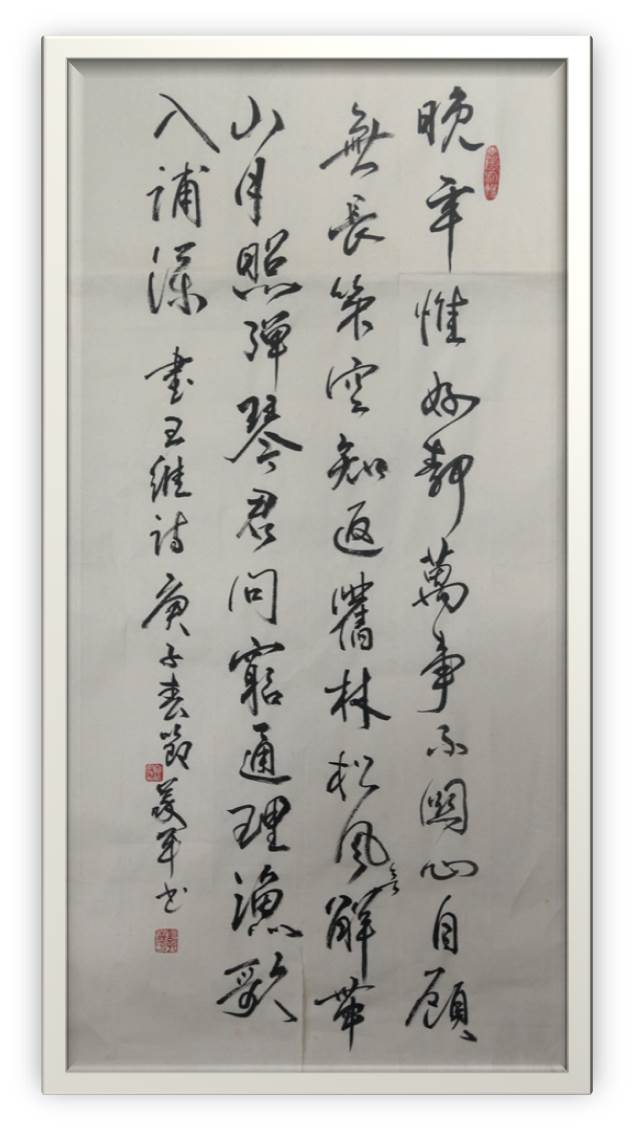 晚年惟好靜萬事不關心自顧
無長策空知返舊林松風解帶
山月照彈琴君問窮通理漁歌
入浦深 書王維詩 庚子春節 军书